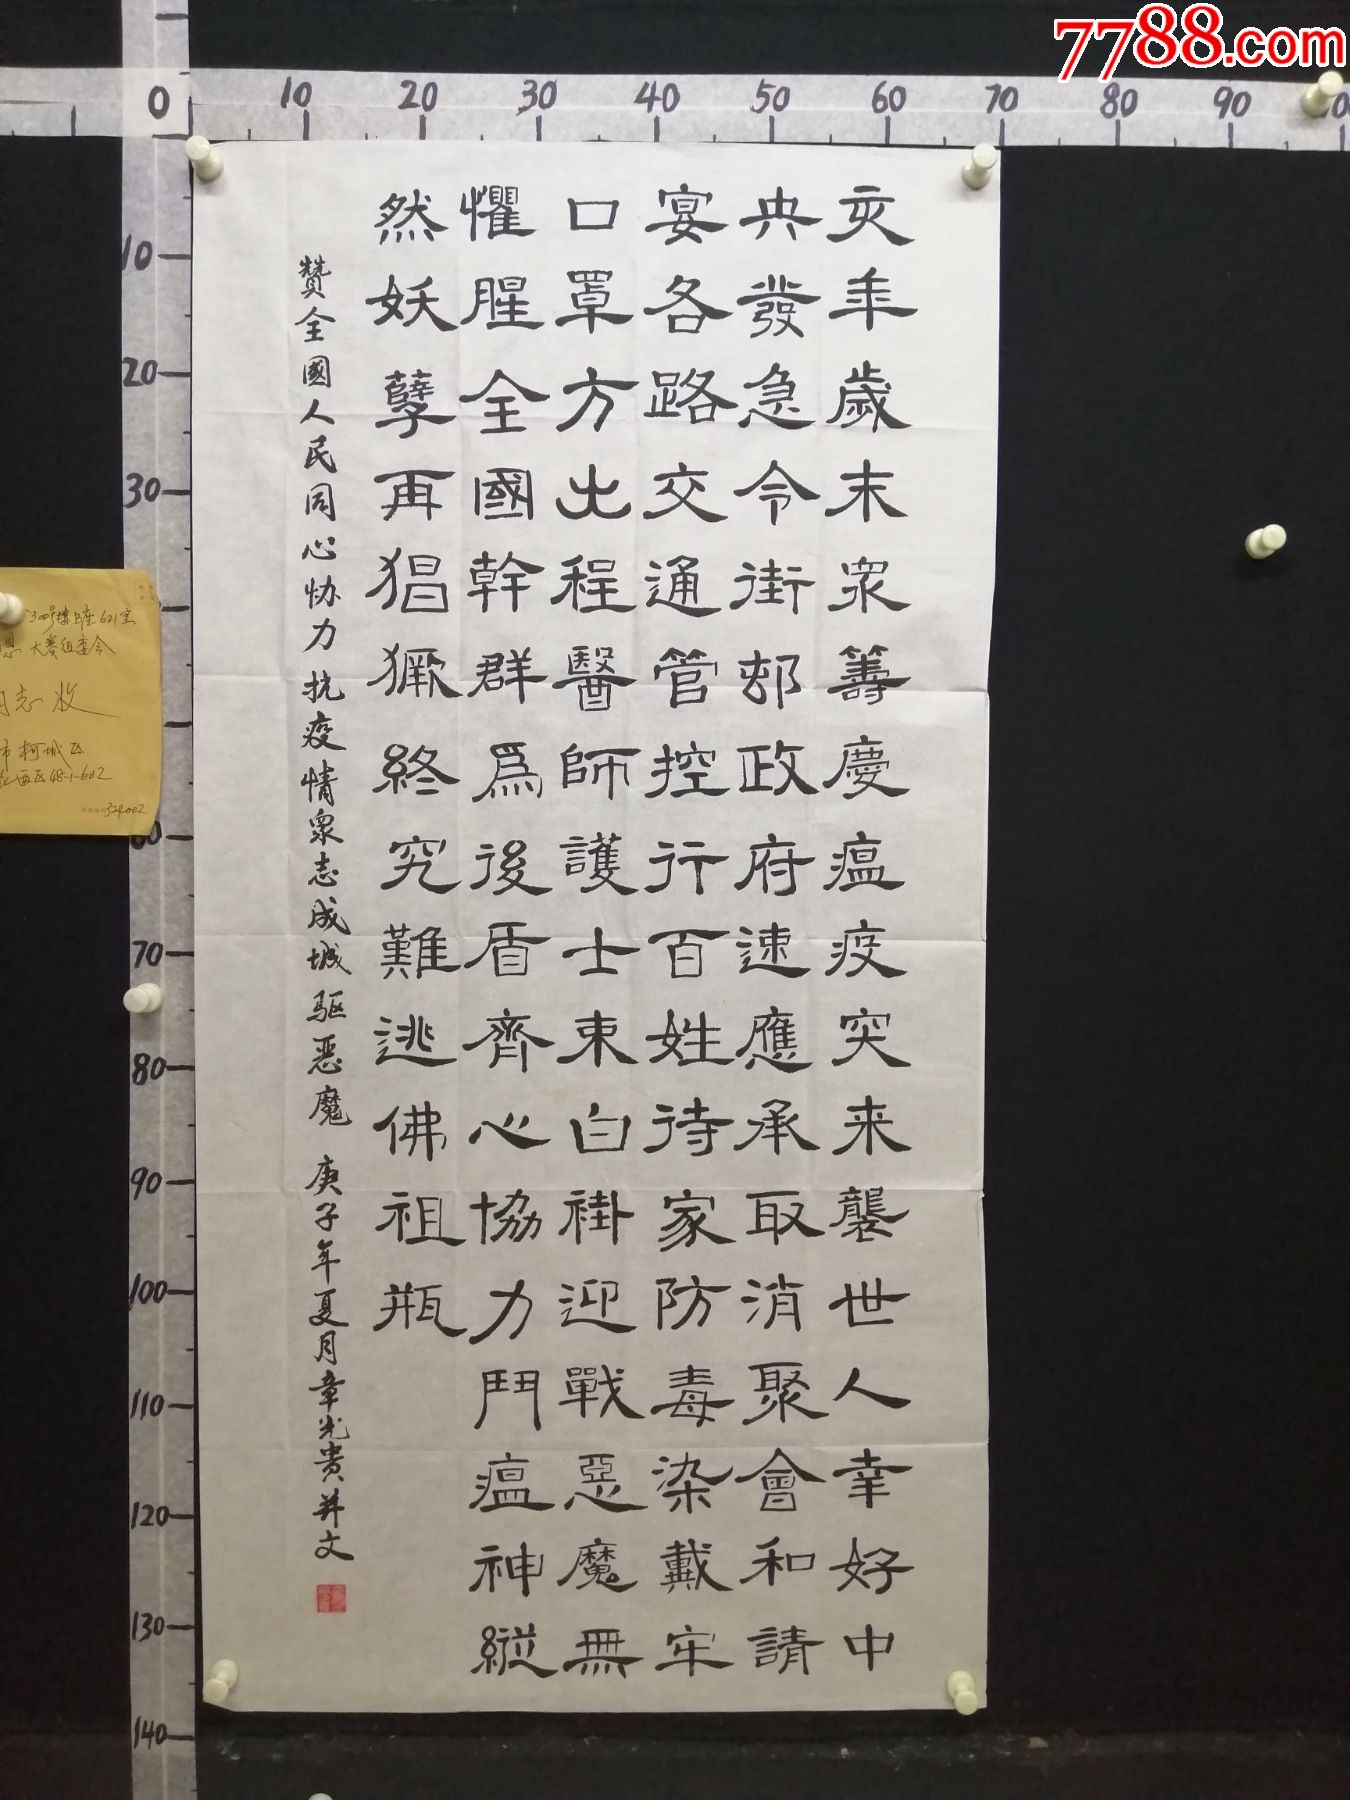 7788.com
0 10 20 30 40 50 60 70 80 90
10
20
30
70
80
90
100
110
120
130
140
亥年歲末眾籌慶瘟疫突来襲世人幸好中
央發急令街邨政府速應承取消聚會和請
宴各路交通管控行百姓待家防毒染戴牢
口罩方出程醫師護士束白褂迎戰惡魔無
懼腥全國幹群爲後盾齊心協力鬥瘟神縱
然妖孽再猖獗終究難逃佛祖瓶
贊全國人民同心协力抗疫情眾志成城驱惡魔 庚子年夏月章光贵并文
300号楼B座621室
大赛组委会
同志收
市柯城区
区48-1-602
324002